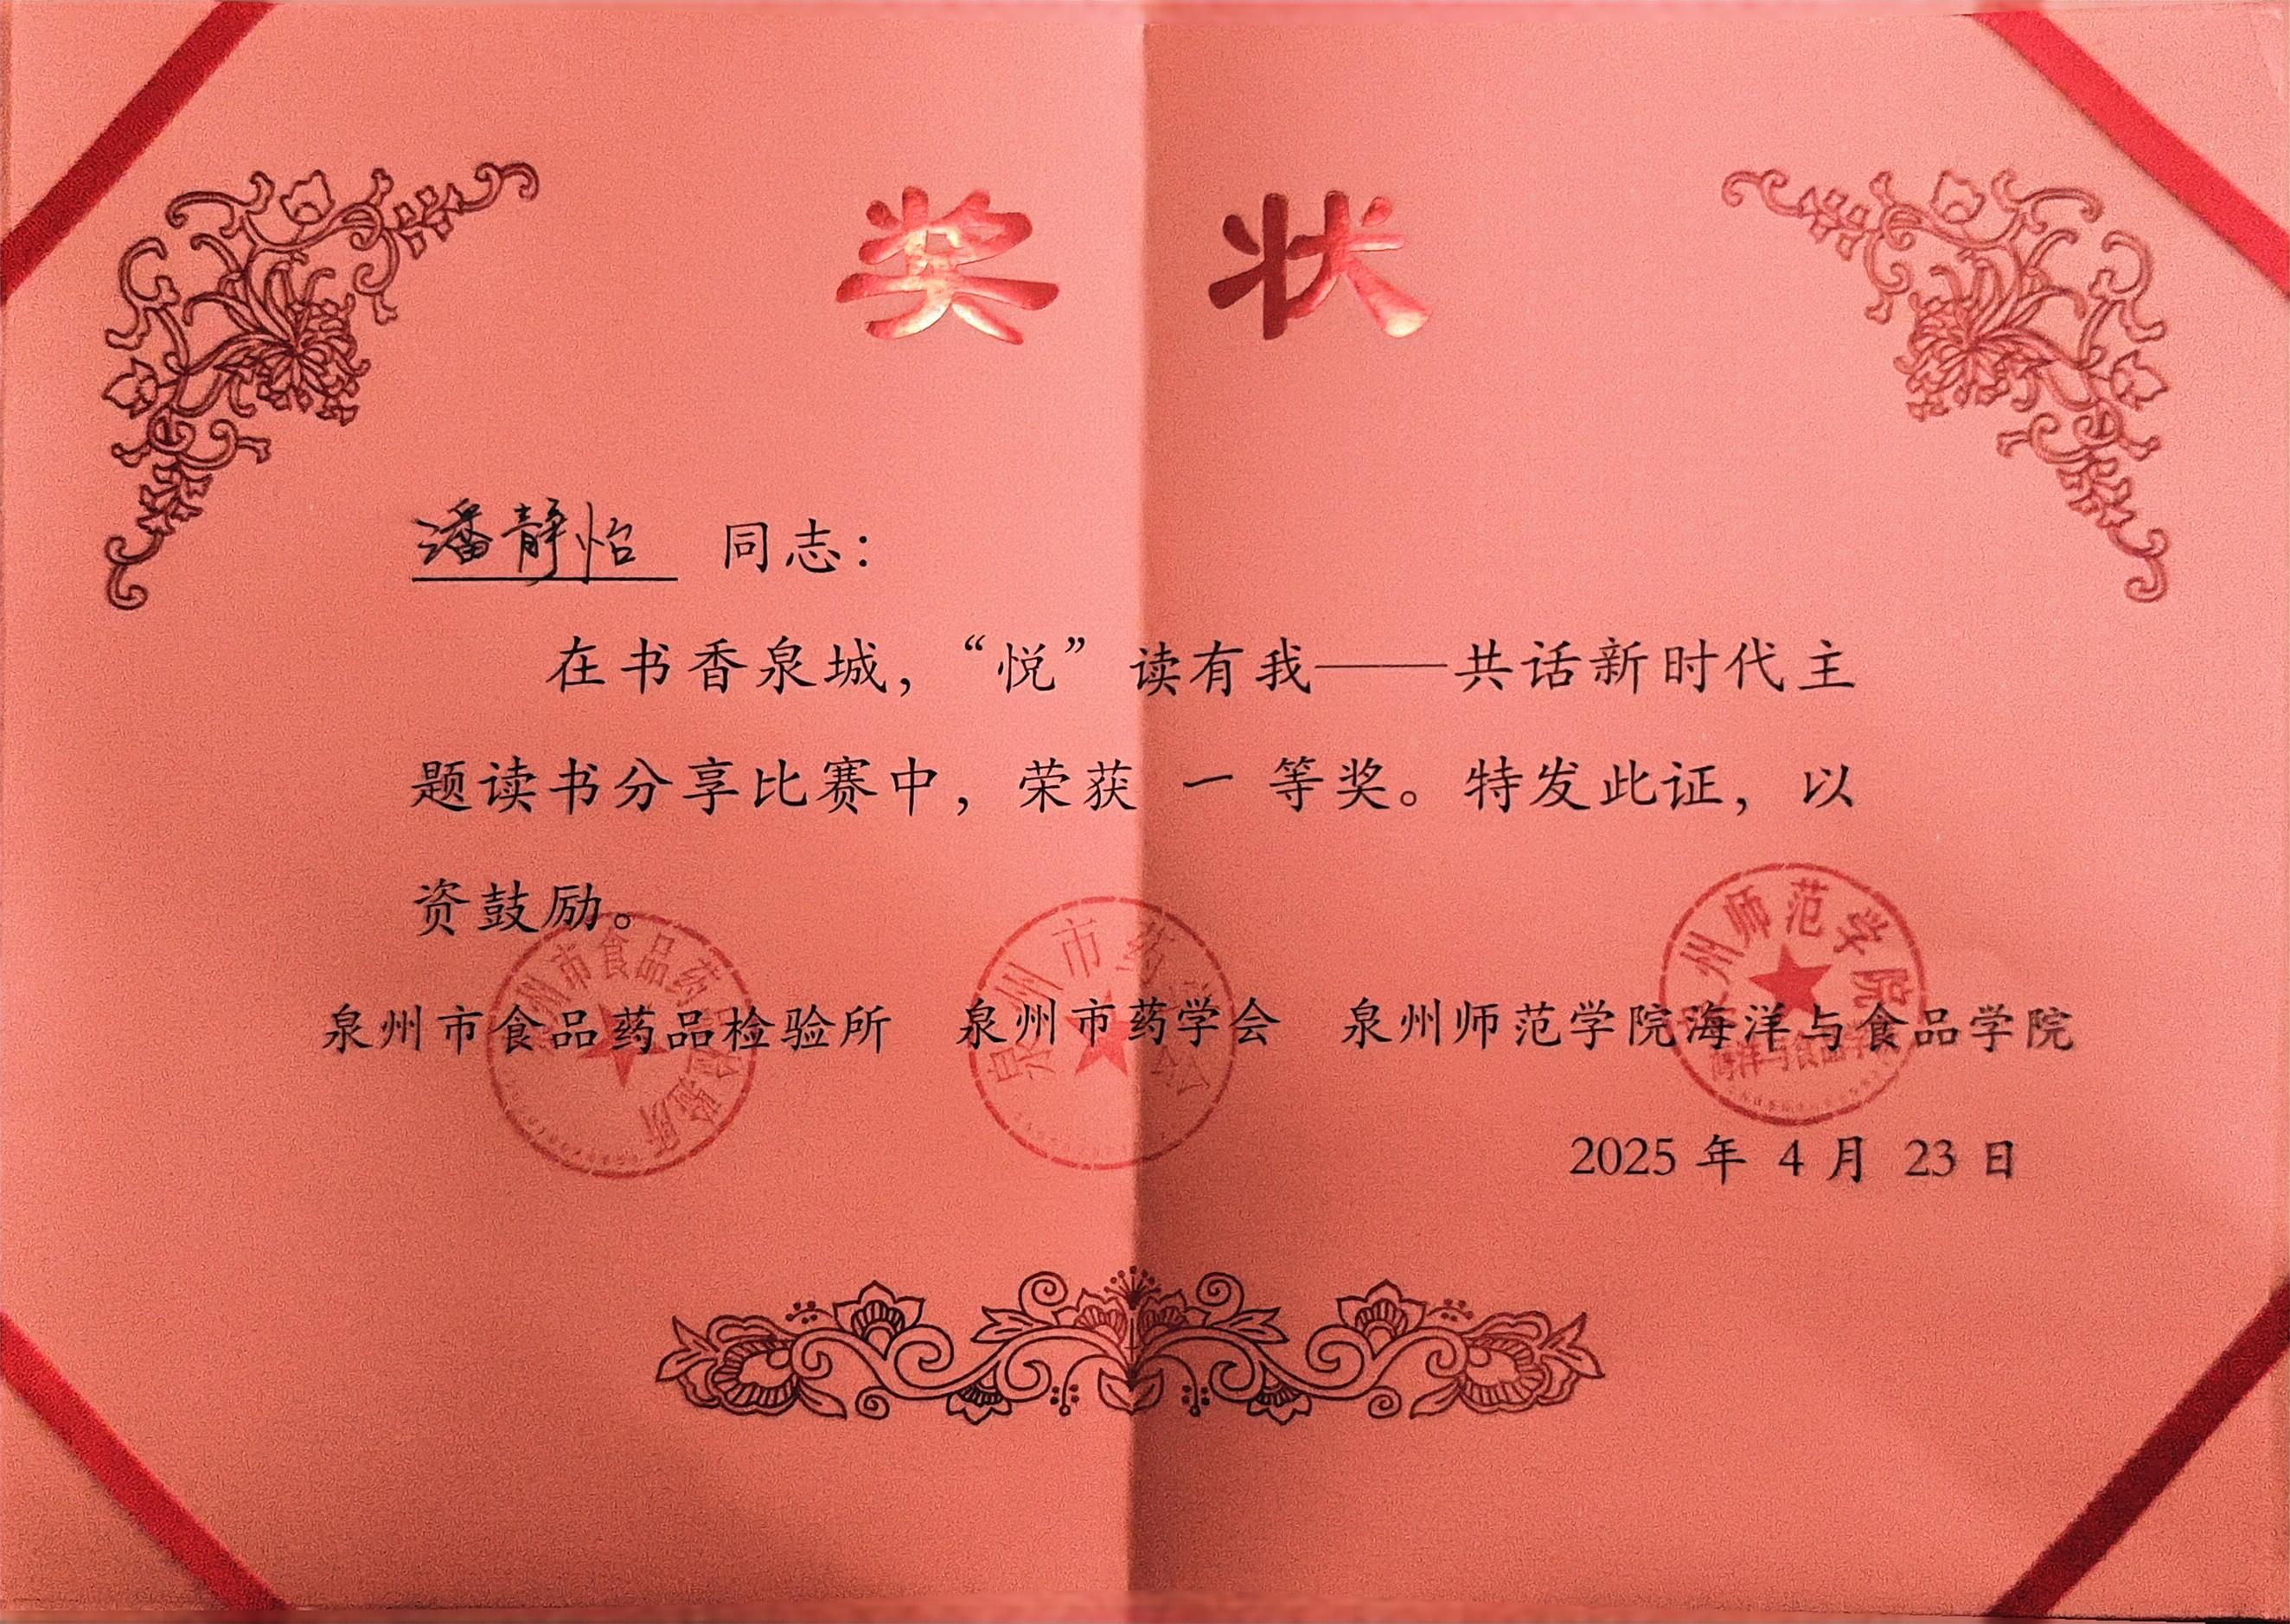 奖状
潘静怡 同志：
在书香泉城，“悦”读有我——共话新时代主
题读书分享比赛中，荣获 一 等奖。特发此证，以
资鼓励。
泉州市食品药品检验所 泉州市药学会 泉州师范学院海洋与食品学院
州市食品药品检验所
泉州市药学会
泉州师范学院
海洋与食品学院
2025 年 4 月 23 日